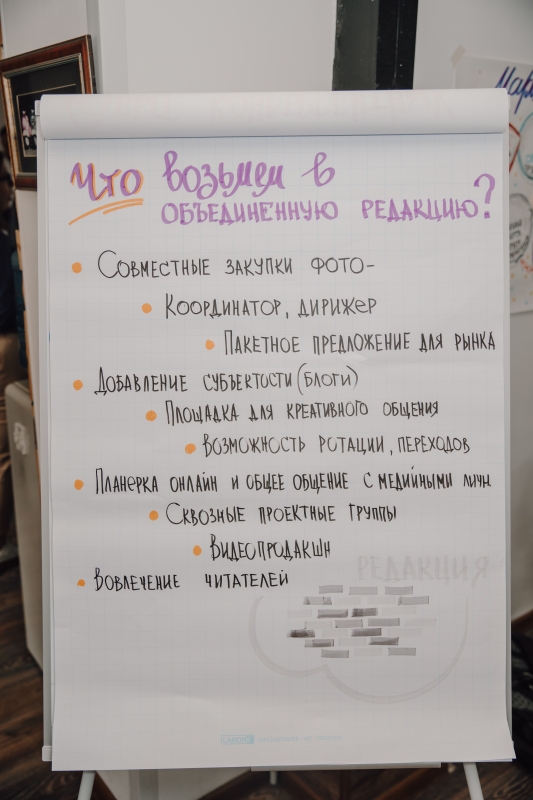 Что возьмем в
объединенную редакцию?
• Совместные закупки фото-
• Координатор, дирижер
• Пакетное предложение для рынка
• Добавление субъектости (блоги)
• Площадка для креативного общения
• Возможность ротации, переходов
• Планерка онлайн и общее общение с медийными личн.
• Сквозные проектные группы
• Видеопродакшн
• Вовлечение читателей
РЕДАКЦИЯ